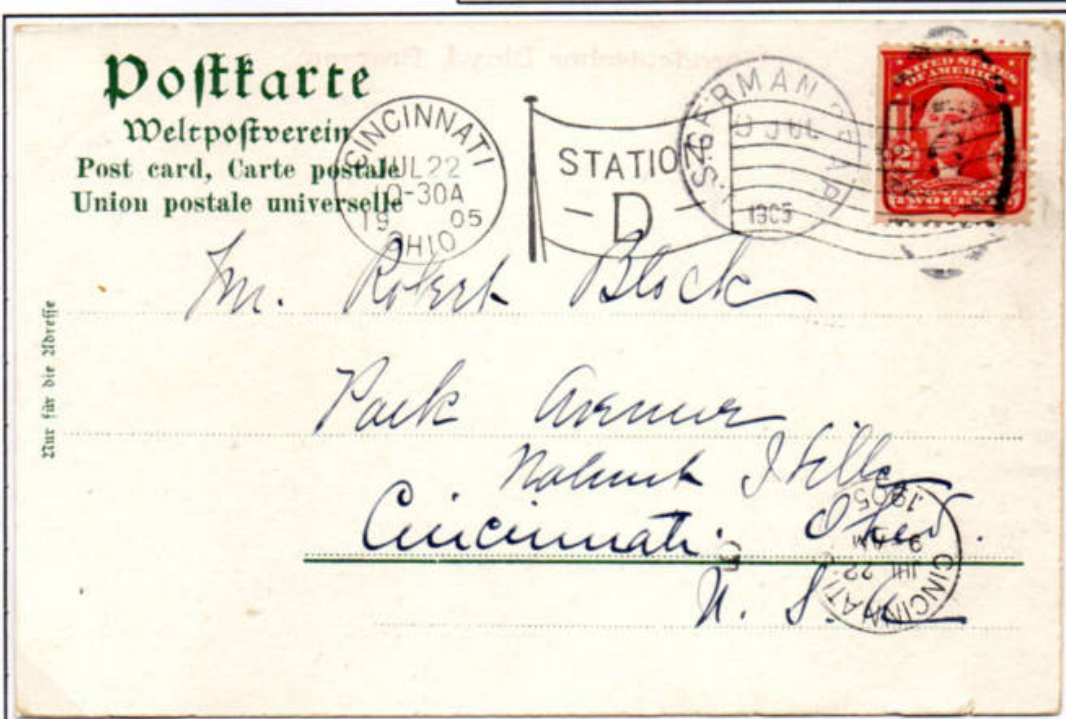 Postkarte
Weltpostverein
Post card, Carte postale
Union postale universelle
CINCINNATI
JUL 22
10-30A
1905
OHIO
STATION
- D -
U.S. GERMAN
JUL
1905
UNITED STATES
OF AMERICA
Nur für die Adresse
Mr. Robert Block
Park Avenue
Walnut Hills
Cincinnati. Ohio.
U. S. A
CINCINNATI
JUL 22
9 AM
1905